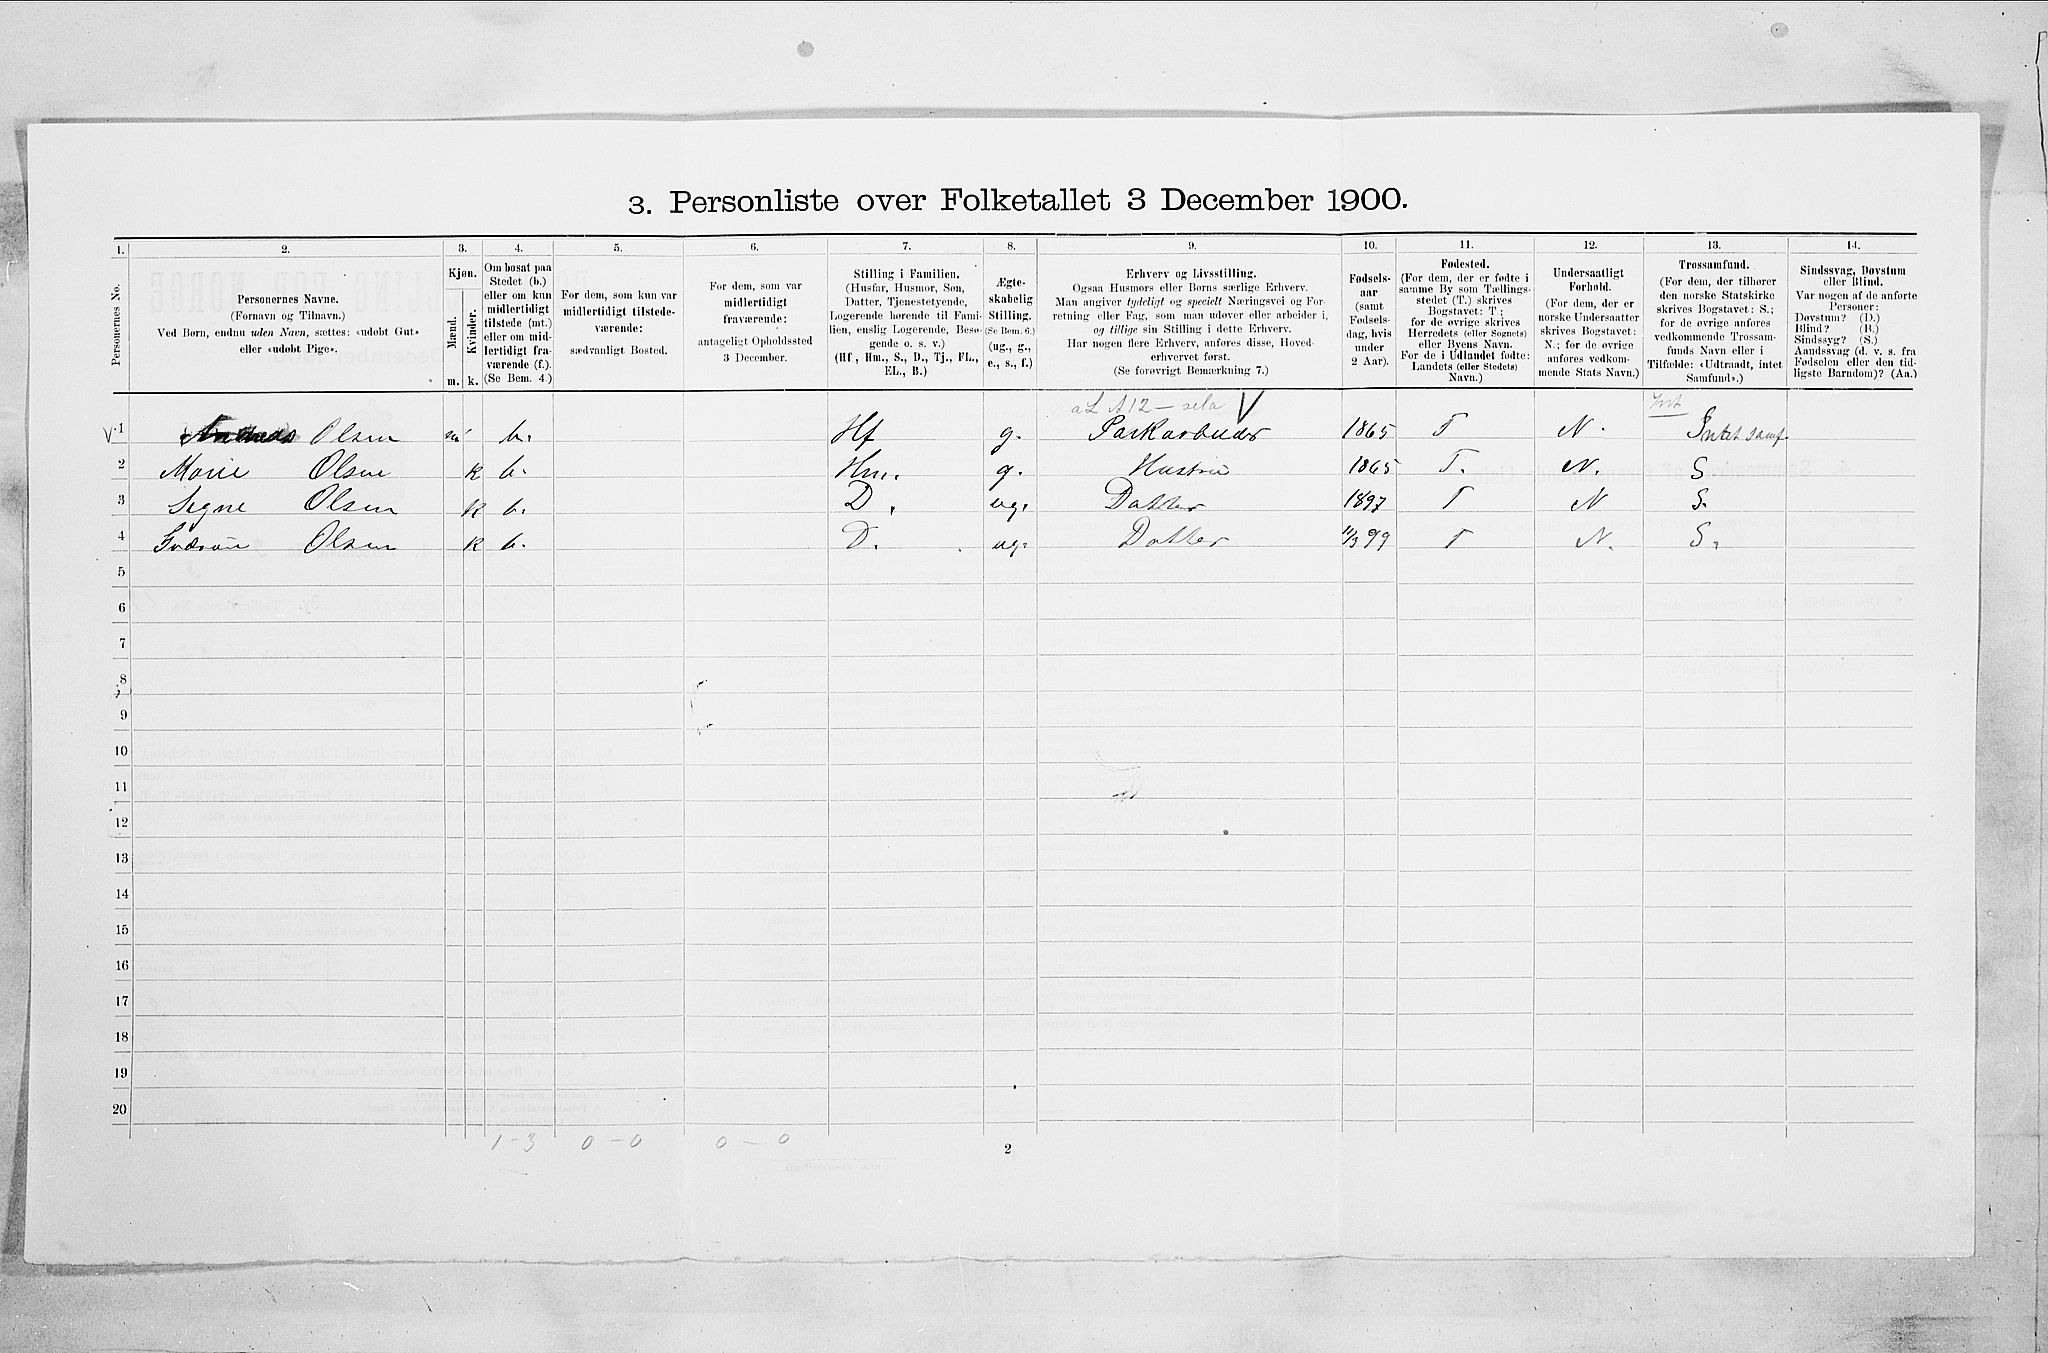 3. Personliste over Folketallet 3 December 1900.
1. 2. 3. 4. 5. 6. 7. 8. 9. 10. 11. 12. 13. 14.
Personernes No.
Personernes Navne.
(Fornavn og Tilnavn.)
Ved Børn, endnu uden Navn, sættes: «udøbt Gut»
eller «udøbt Pige».
Kjøn.
Mænd.
Kvinder.
m. k.
Om bosat paa
Stedet (b.)
eller om kun
midlertidigt
tilstede (mt.)
eller om mid-
lertidigt fra-
værende (f.).
(Se Bem. 4.)
For dem, som kun var
midlertidigt tilstede-
værende:
sædvanligt Bosted.
For dem, som var
midlertidigt
fraværende:
antageligt Opholdssted
3 December.
Stilling i Familien.
(Husfar, Husmor, Søn,
Datter, Tjenestetyende,
Logerende hørende til Fami-
lien, enslig Logerende, Besø-
gende o. s. v.)
(Hf, Hm., S., D., Tj., FL.,
EL., B.)
Ægte-
skabelig
Stilling.
(Se Bem. 6.)
(ug., g.,
e., s., f.)
Erhverv og Livsstilling.
Ogsaa Husmors eller Børns særlige Erhverv.
Man angiver tydeligt og specielt Næringsvei og For-
retning eller Fag, som man udøver eller arbeider i,
og tillige sin Stilling i dette Erhverv.
Har nogen flere Erhverv, anføres disse, Hoved-
erhvervet først.
(Se forøvrigt Bemærkning 7.)
Fødsels-
aar
(samt
Fødsels-
dag, hvis
under
2 Aar).
Fødested.
(For dem, der er fødte i
samme By som Tællings-
stedet (T.) skrives
Bogstavet: T;
for de øvrige skrives
Herredets (eller Sognets)
eller Byens Navn.
For de i Udlandet fødte:
Landets (eller Stedets)
Navn.)
Undersaatligt
Forhold.
(For dem, der er
norske Undersaatter
skrives Bogstavet:
N.; for de øvrige
anføres vedkom-
mende Stats Navn.)
Trossamfund.
(For dem, der tilhører
den norske Statskirke
skrives Bogstavet: S.;
for de øvrige anføres
vedkommende Trossam-
funds Navn eller i
Tilfælde: «Udtraadt, intet
Samfund».)
Sindssvag, Døvstum
eller Blind.
Var nogen af de anførte
Personer:
Døvstum? (D.)
Blind? (B.)
Sindssyg? (S.)
Aandssvag (d. v. s. fra
Fødselen eller den tid-
ligste Barndom)? (Aa.)
1 Olsen m b. Hf g. 1865 T N. Intet samf.
2 Marie Olsen k b. Hm. g. Hustru 1865 T. N. S.
3 Signe Olsen k b. D. ug. Datter 1897 T N S.
4 Olsen k b. D. ug. Datter 11/3 99 T N. S.
5
6
7
8
9
10
11
12
13
14
15
16
17
18
19
20
1 - 3 0 - 0 0 - 0
2